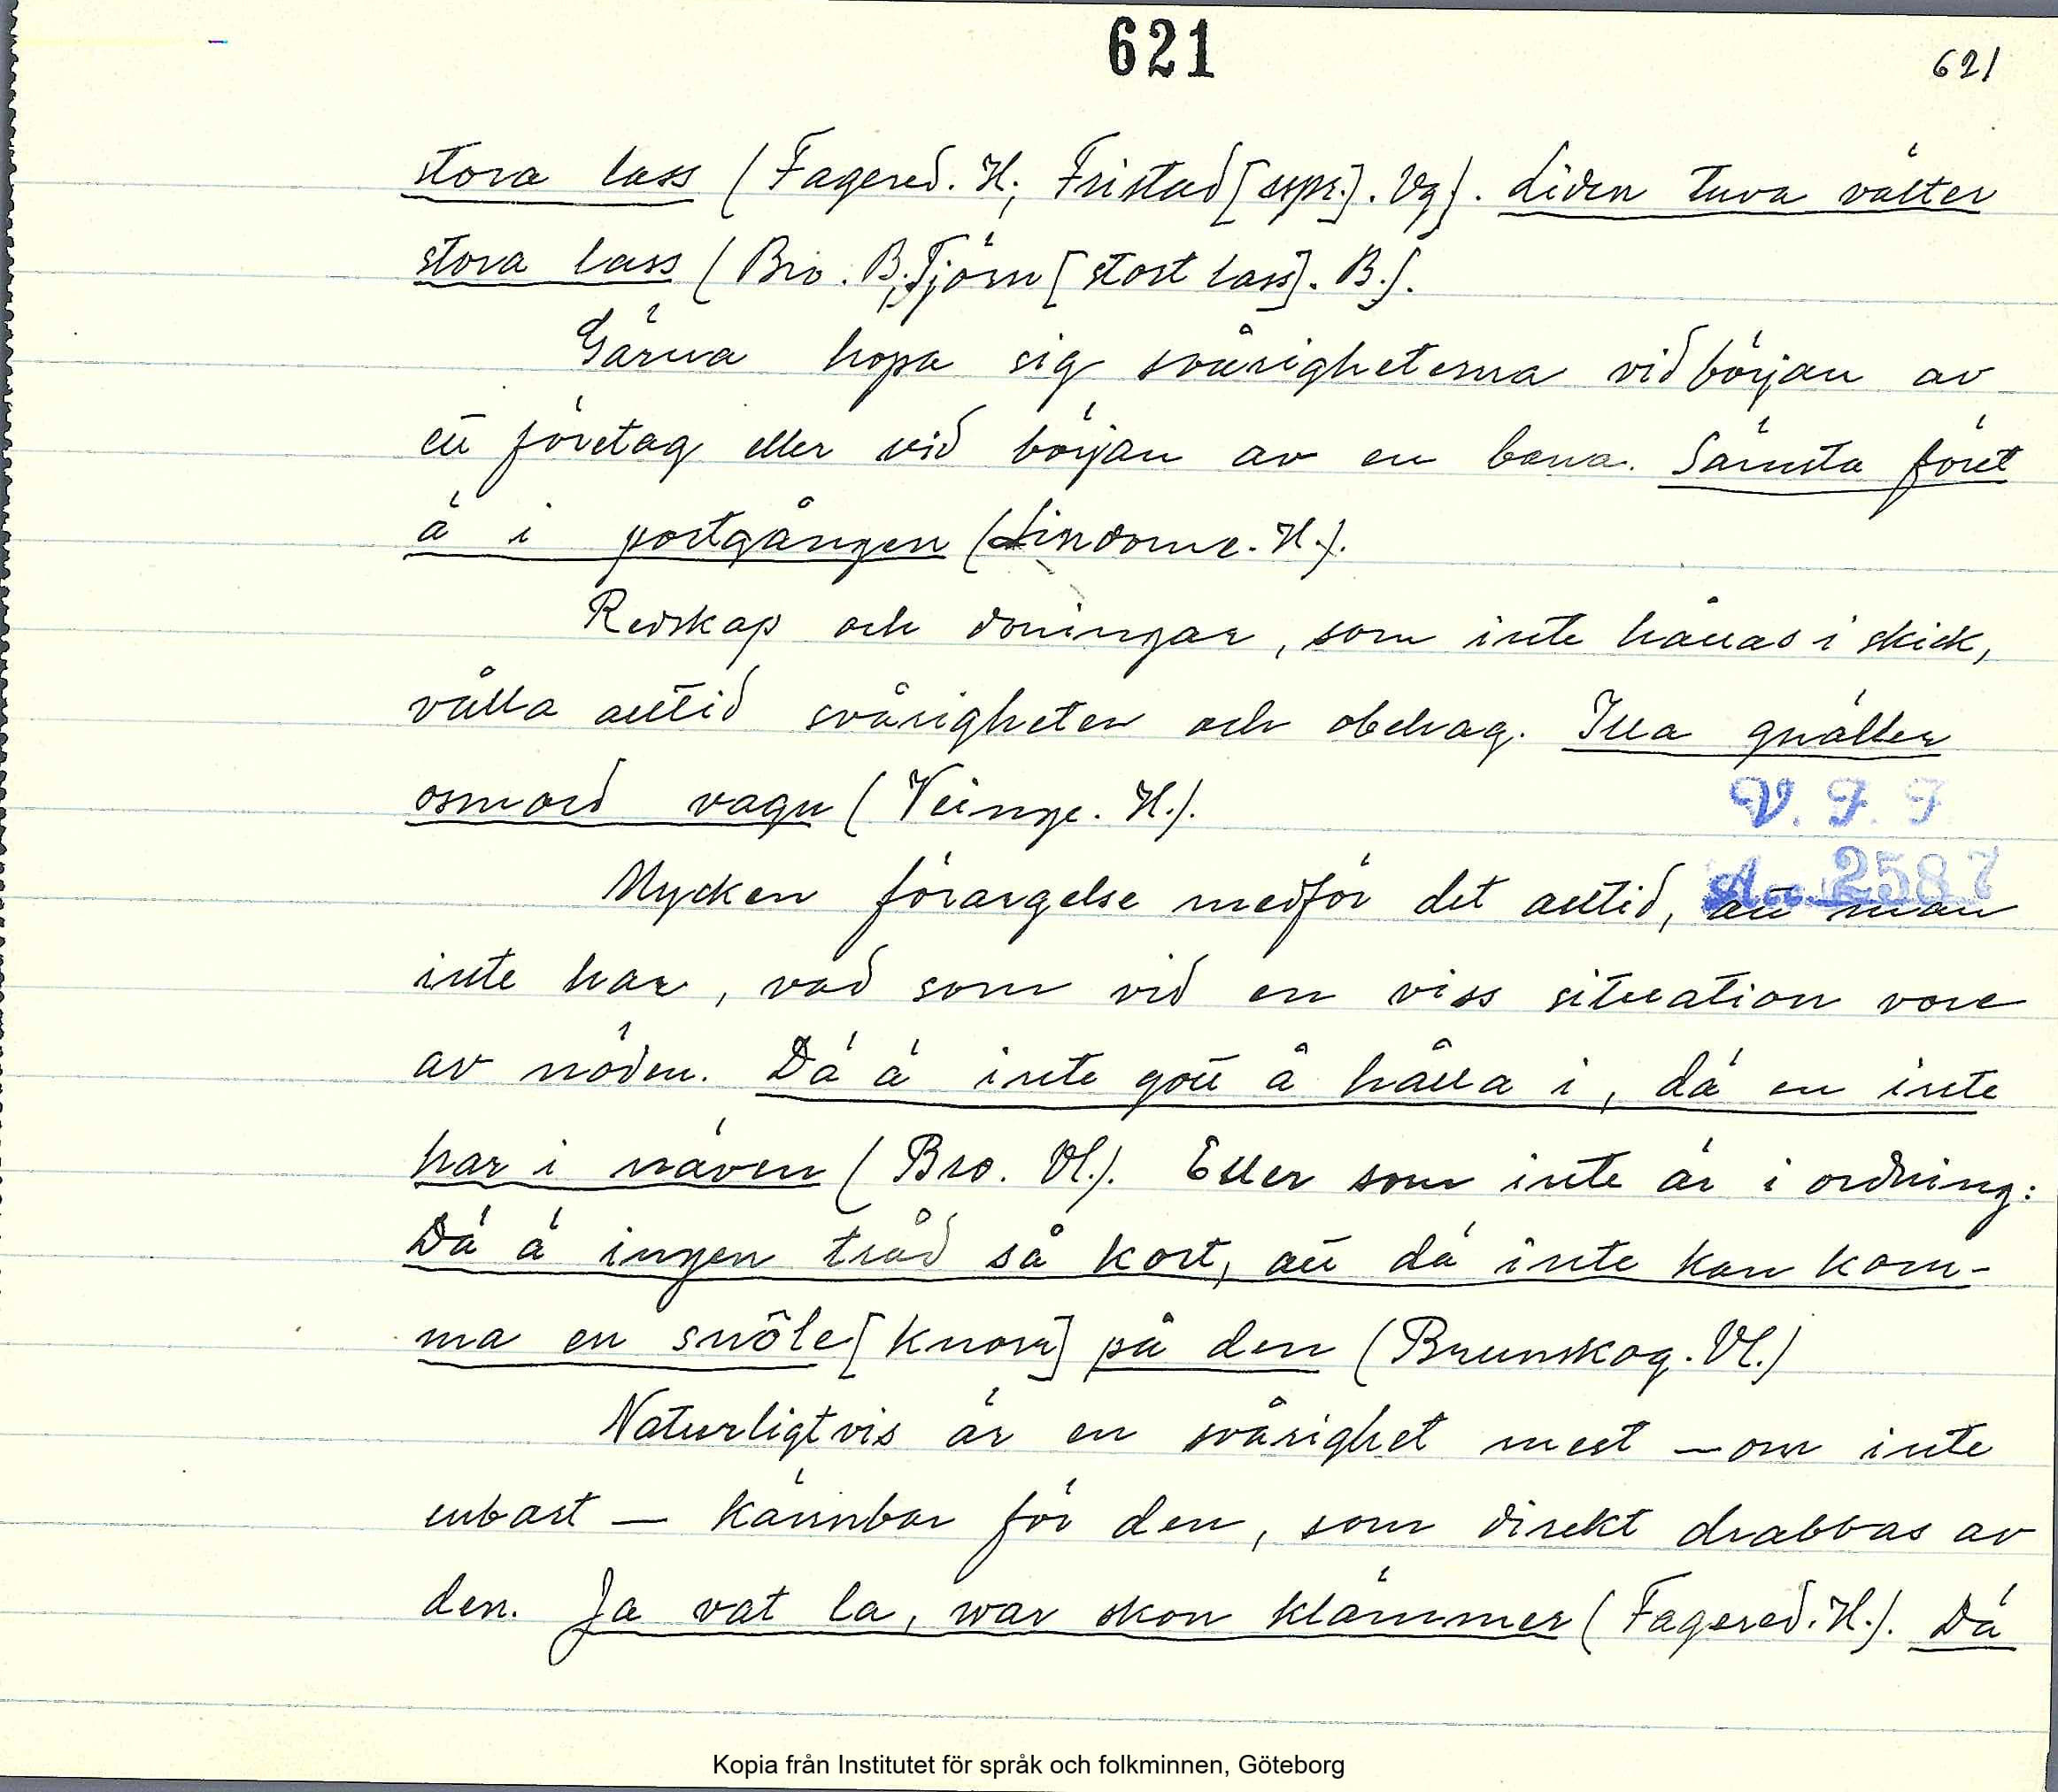 621
621
stora lass (Fagered. H; Fristad [sppr.]. Vg). Liden tuva välter
stora lass (Bro. B; Tjörn [stort lass]. B.).
Gärna hopa sig svårigheterna vid början av
ett företag eller vid början av en bana. Sämsta föret
ä i portgången (Lindome. H.).
Redskap och doningar, som inte hållas i skick,
vålla alltid svårigheter och obehag. Illa gnäller
osmord vagn (Veinge. H.).
V. F. F
Acc. 2587
Mycken förargelse medför det alltid, att man
inte har, vad som vid en viss situation vore
av nöden. Dä ä inte gott å hålla i, dä en inte
har i näven (Bro. Vl.). Eller som inte är i ordning:
Dä ä ingen tråd så kort, att dä inte kan kom-
ma en snôle [knorr] på den (Brunskog. Vl.)
Naturligtvis är en svårighet mest – om inte
enbart – kännbar för den, som direkt drabbas av
den. Ja vat la, war skon klämmer (Fagered. H.). Dä
Kopia från Institutet för språk och folkminnen, Göteborg